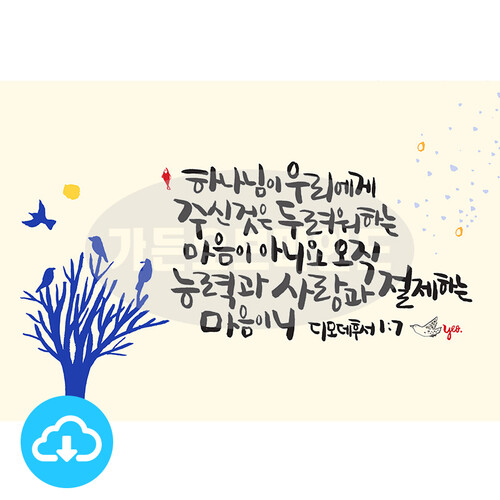 하나님이 우리에게
주신것은 두려워하는
마음이 아니요 오직
능력과 사랑과 절제하는
마음이니 디모데후서 1:7 yeo.